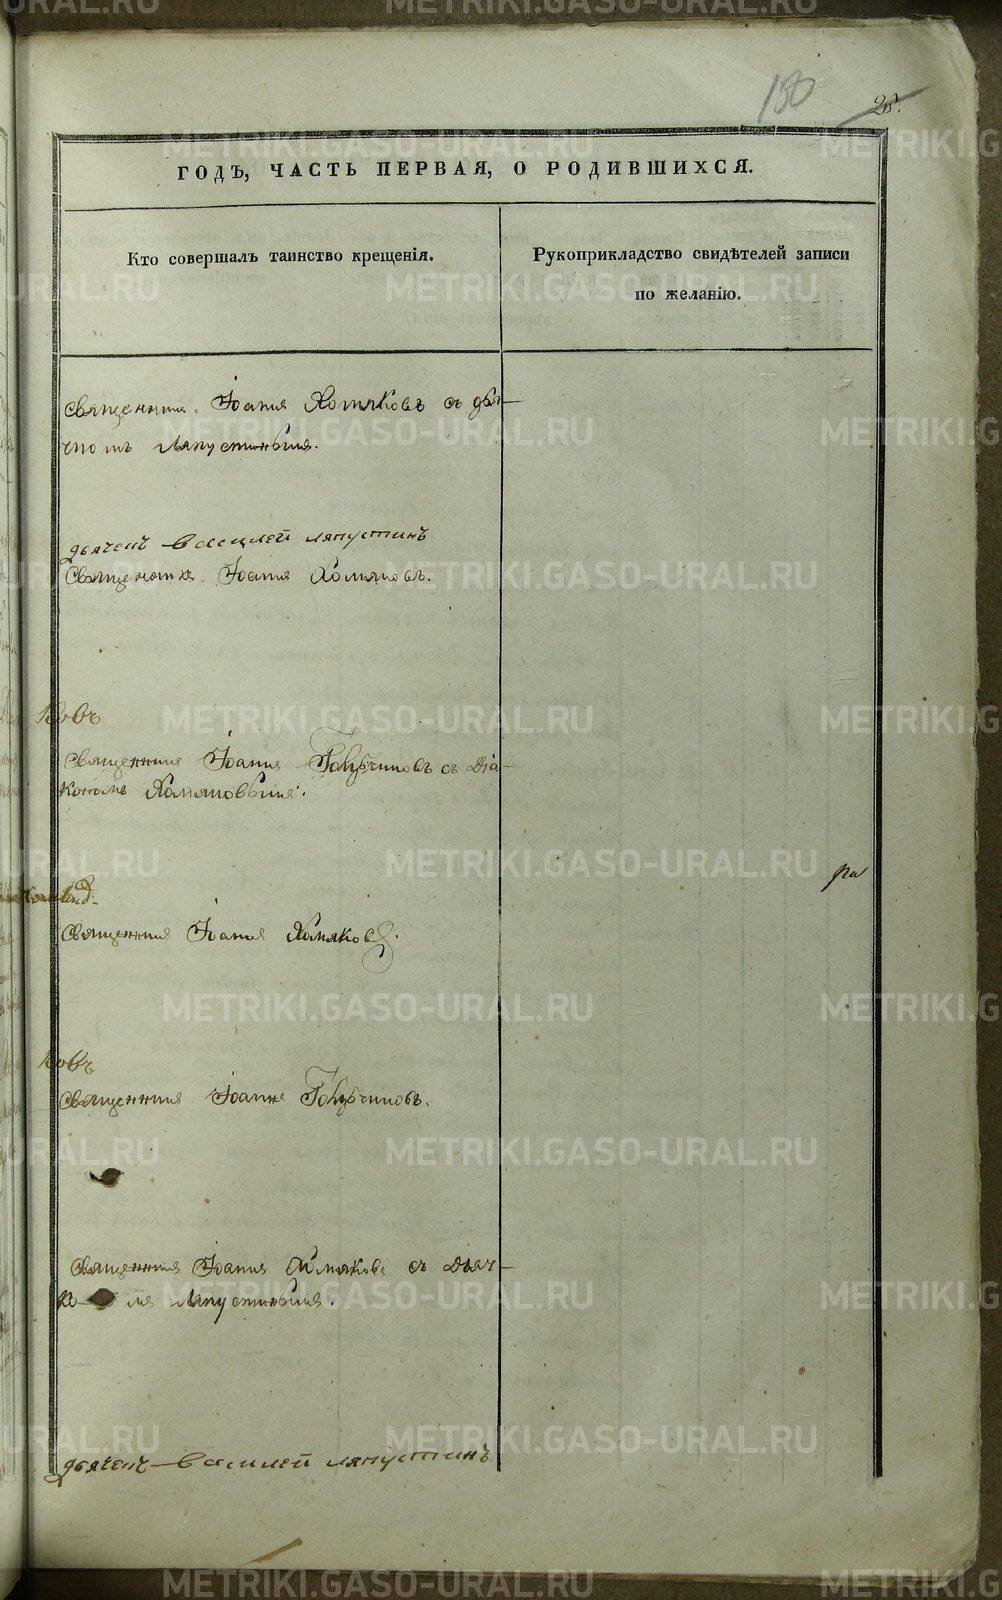 150
26.
ГОДЪ, ЧАСТЬ ПЕРВАЯ, О РОДИВШИХСЯ.
Кто совершалъ таинство крещенія.
Рукоприкладство свидѣтелей записи
по желанію.
Священник Іоанн Хомяковъ съ дья-
чкомъ Ляпустинымъ.
дьячекъ Василей Ляпустинъ
Священникъ Іоаннъ Хомяковъ.
ковъ
Священник Іоаннъ съ Діа-
кономъ Хомяковымъ.
Священникъ Іоаннъ Хомяковъ.
ковъ
Священникъ Іоаннъ
Священникъ Іоаннъ Хомяковъ съ Дьяч-
ко мъ Ляпустинымъ.
дьячекъ Василей Ляпустинъ
METRIKI.GASO-URAL.RU